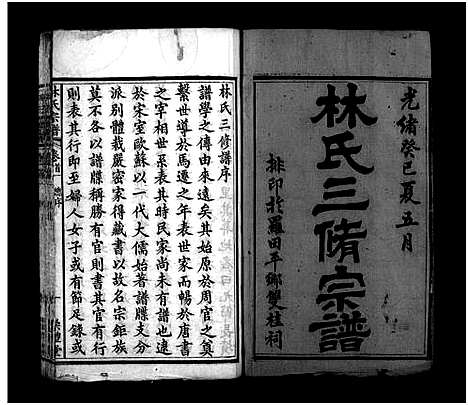 光緒癸巳夏五月
林氏三脩宗譜
排印於羅田平鄉雙桂祠
林氏三修譜序
譜學之傳由來遠矣其始原於周官之奠
繫世導於馬遷之年表世家而暢於唐書
之宰相世系表其時民家尚未有譜也迨
於宋室歐蘇以一代大儒始著譜牒支分
派別體裁嚴密家得藏書以故名宗鉅族
莫不各以譜牒稱勝有官則書其官有行
則表其行即至婦人女子或有節足錄或